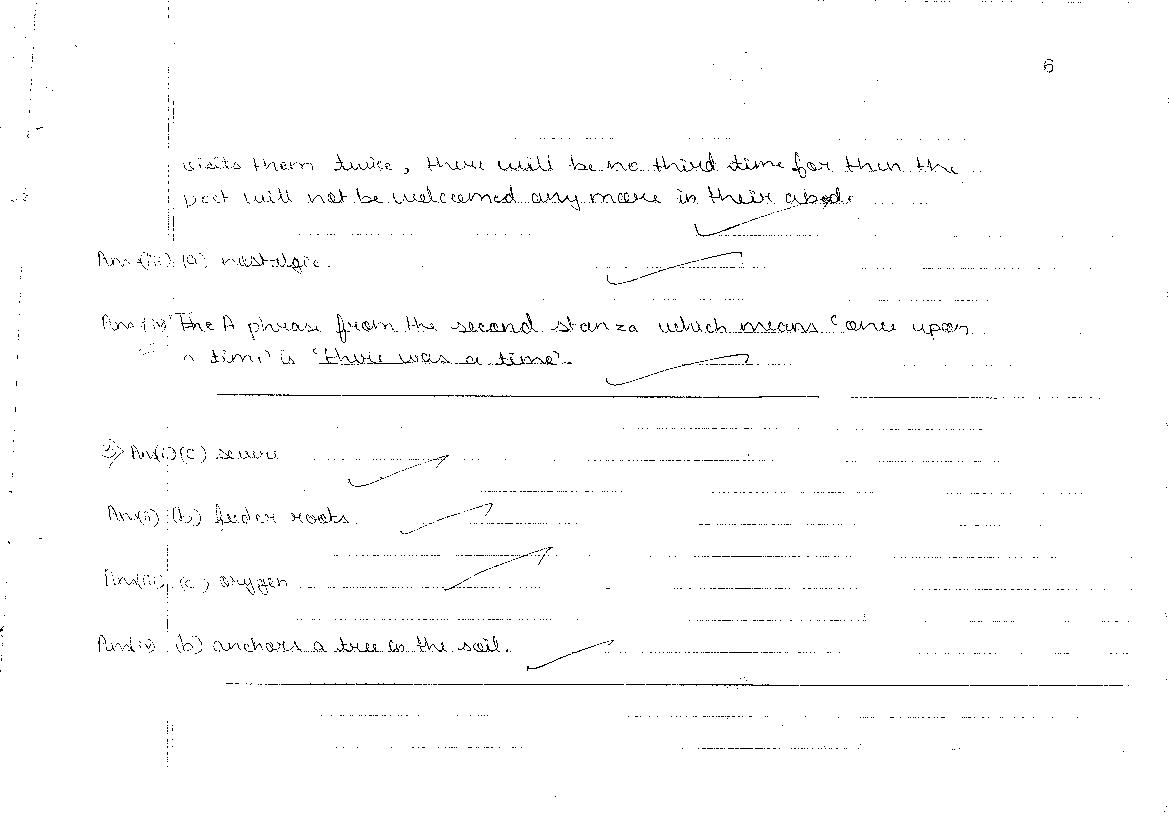 6
visits them twice, there will be no third time for then the
poet will not be welcomed any more in their abode
Ans(iii) (a) nostalgic.
Ans(iv) The A phrase from the second stanza which means 'once upon
a time' is 'there was a time'.
3) Ans(i) (c) severe
Ans(ii) (b) feeder roots.
Ans(iii) (c) oxygen
Ans(iv) (b) anchors a tree in the soil.